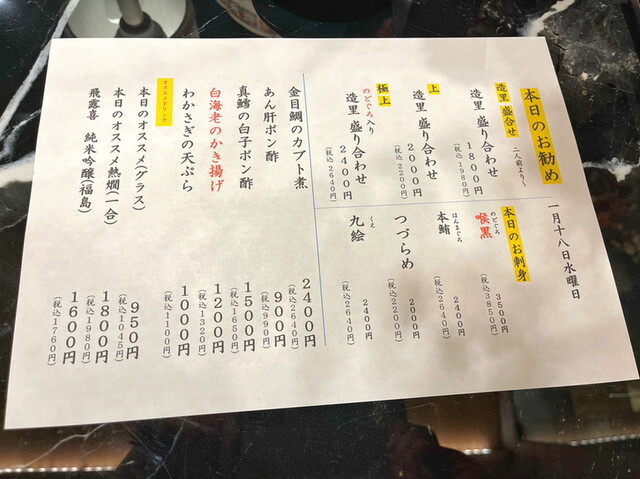 本日のお勧め
一月十八日水曜日
造里 盛合せ 二人前より〜
造里 盛り合わせ
1800円
(税込1980円)
上
造里 盛り合わせ
2000円
(税込2200円)
極上
のどぐろ入り
造里 盛り合わせ
2400円
(税込2640円)
本日のお刺身
のどぐろ
喉黒
3500円
(税込3850円)
ほんまぐろ
本鮪
2400円
(税込2640円)
つづらめ
2000円
(税込2200円)
くえ
九絵
2400円
(税込2640円)
金目鯛のカブト煮
2400円
(税込2640円)
あん肝ポン酢
900円
(税込990円)
真鱈の白子ポン酢
1500円
(税込1650円)
白海老のかき揚げ
1200円
(税込1320円)
わかさぎの天ぷら
1000円
(税込1100円)
オススメドリンク
本日のオススメ(グラス)
950円
(税込1045円)
本日のオススメ熱燗(一合)
1800円
(税込1980円)
飛露喜 純米吟醸(福島)
1600円
(税込1760円)